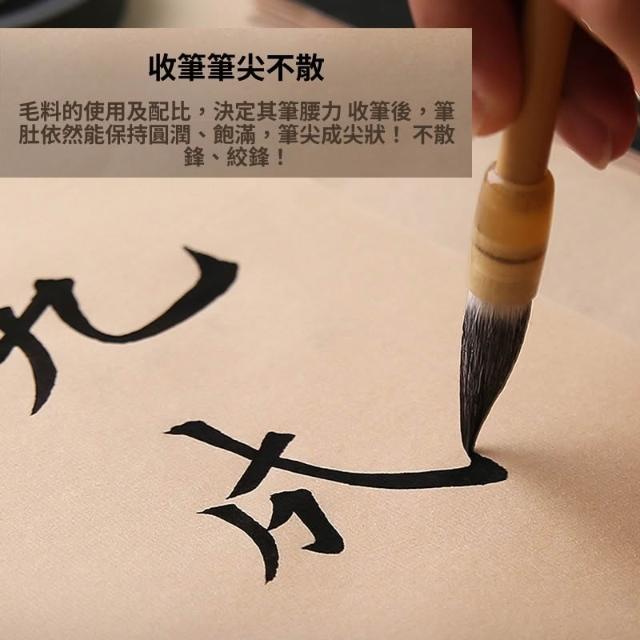 收筆筆尖不散
毛料的使用及配比，決定其筆腰力 收筆後，筆
肚依然能保持圓潤、飽滿，筆尖成尖狀！ 不散
鋒、絞鋒！